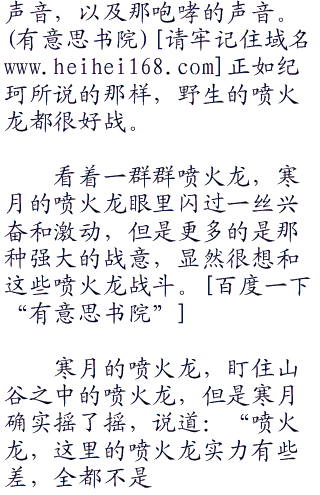 声音，以及那咆哮的声音。
(有意思书院)[请牢记住域名
www.heihei168.com]正如纪
珂所说的那样，野生的喷火
龙都很好战。
看着一群群喷火龙，寒
月的喷火龙眼里闪过一丝兴
奋和激动，但是更多的是那
种强大的战意，显然很想和
这些喷火龙战斗。[百度一下
“有意思书院”]
寒月的喷火龙，盯住山
谷之中的喷火龙，但是寒月
确实摇了摇，说道：“喷火
龙，这里的喷火龙实力有些
差，全都不是